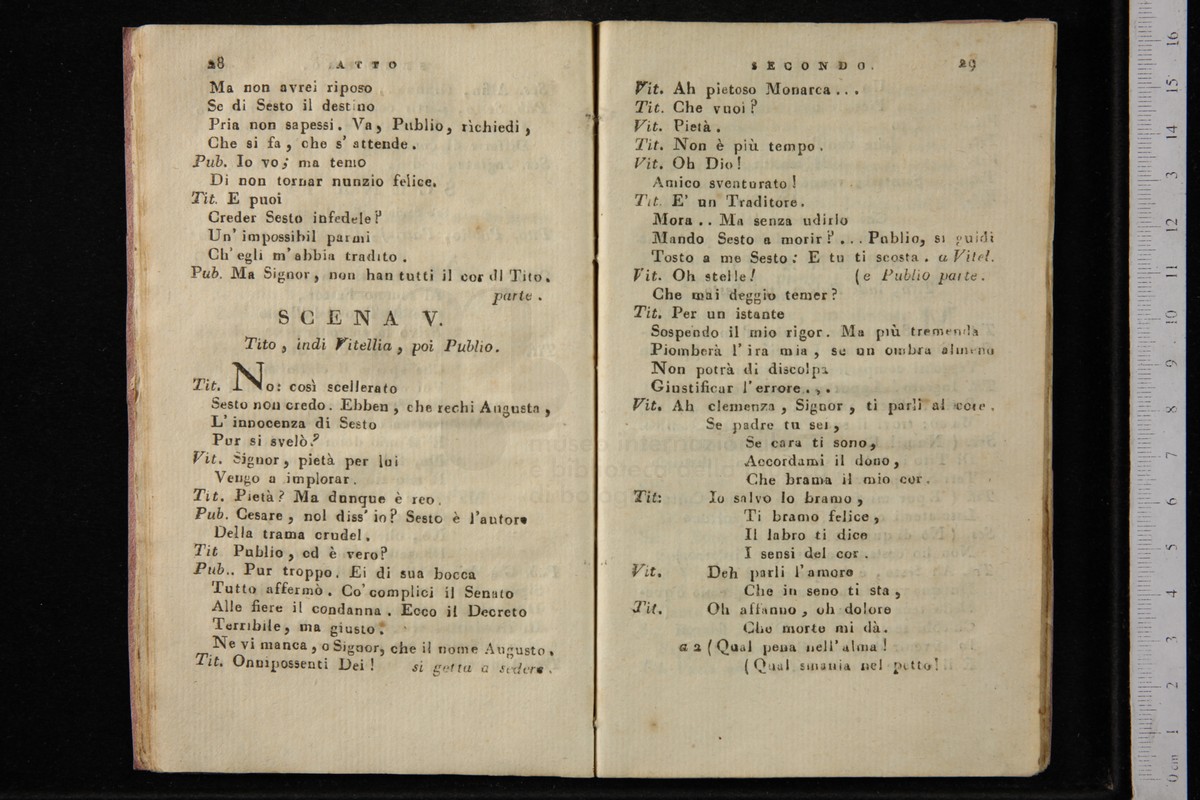 28 ATTO
Ma non avrei riposo
Se di Sesto il destino
Pria non sapessi. Va, Publio, richiedi,
Che si fa, che s' attende.
Pub. Io vo; ma temo
Di non tornar nunzio felice.
Tit. E puoi
Creder Sesto infedele?
Un' impossibil parmi
Ch' egli m' abbia tradito.
Pub. Ma Signor, non han tutti il cor di Tito.
parte.
SCENA V.
Tito, indi Vitellia, poi Publio.
Tit. No: così scellerato
Sesto non credo. Ebben, che rechi Augusta,
L' innocenza di Sesto
Pur si svelò?
Vit. Signor, pietà per lui
Vengo a implorar.
Tit. Pietà? Ma dunque è reo.
Pub. Cesare, nol diss' io? Sesto è l'autore
Della trama crudel.
Tit Publio, ed è vero?
Pub.. Pur troppo. Ei di sua bocca
Tutto affermò. Co' complici il Senato
Alle fiere il condanna. Ecco il Decreto
Terribile, ma giusto.
Ne vi manca, o Signor, che il nome Augusto.
Tit. Onnipossenti Dei! si getta a sedere.
SECONDO. 29
Vit. Ah pietoso Monarca...
Tit. Che vuoi?
Vit. Pietà.
Tit. Non è più tempo.
Vit. Oh Dio!
Amico sventurato!
Tit. E' un Traditore.
Mora.. Ma senza udirlo
Mando Sesto a morir?... Publio, si guidi
Tosto a me Sesto: E tu ti scosta. a Vitel.
Vit. Oh stelle! (e Publio parte.
Che mai deggio temer?
Tit. Per un istante
Sospendo il mio rigor. Ma più tremenda
Piomberà l' ira mia, se un ombra almeno
Non potrà di discolpa
Giustificar l' errore...
Vit. Ah clemenza, Signor, ti parli al core.
Se padre tu sei,
Se cara ti sono,
Accordami il dono,
Che brama il mio cor.
Tit: Io salvo lo bramo,
Ti bramo felice,
Il labro ti dice
I sensi del cor.
Vit. Deh parli l' amore
Che in seno ti sta,
Tit. Oh affanno, oh dolore
Che morte mi dà.
a 2 (Qual pena nell' alma!
(Qual smania nel petto!